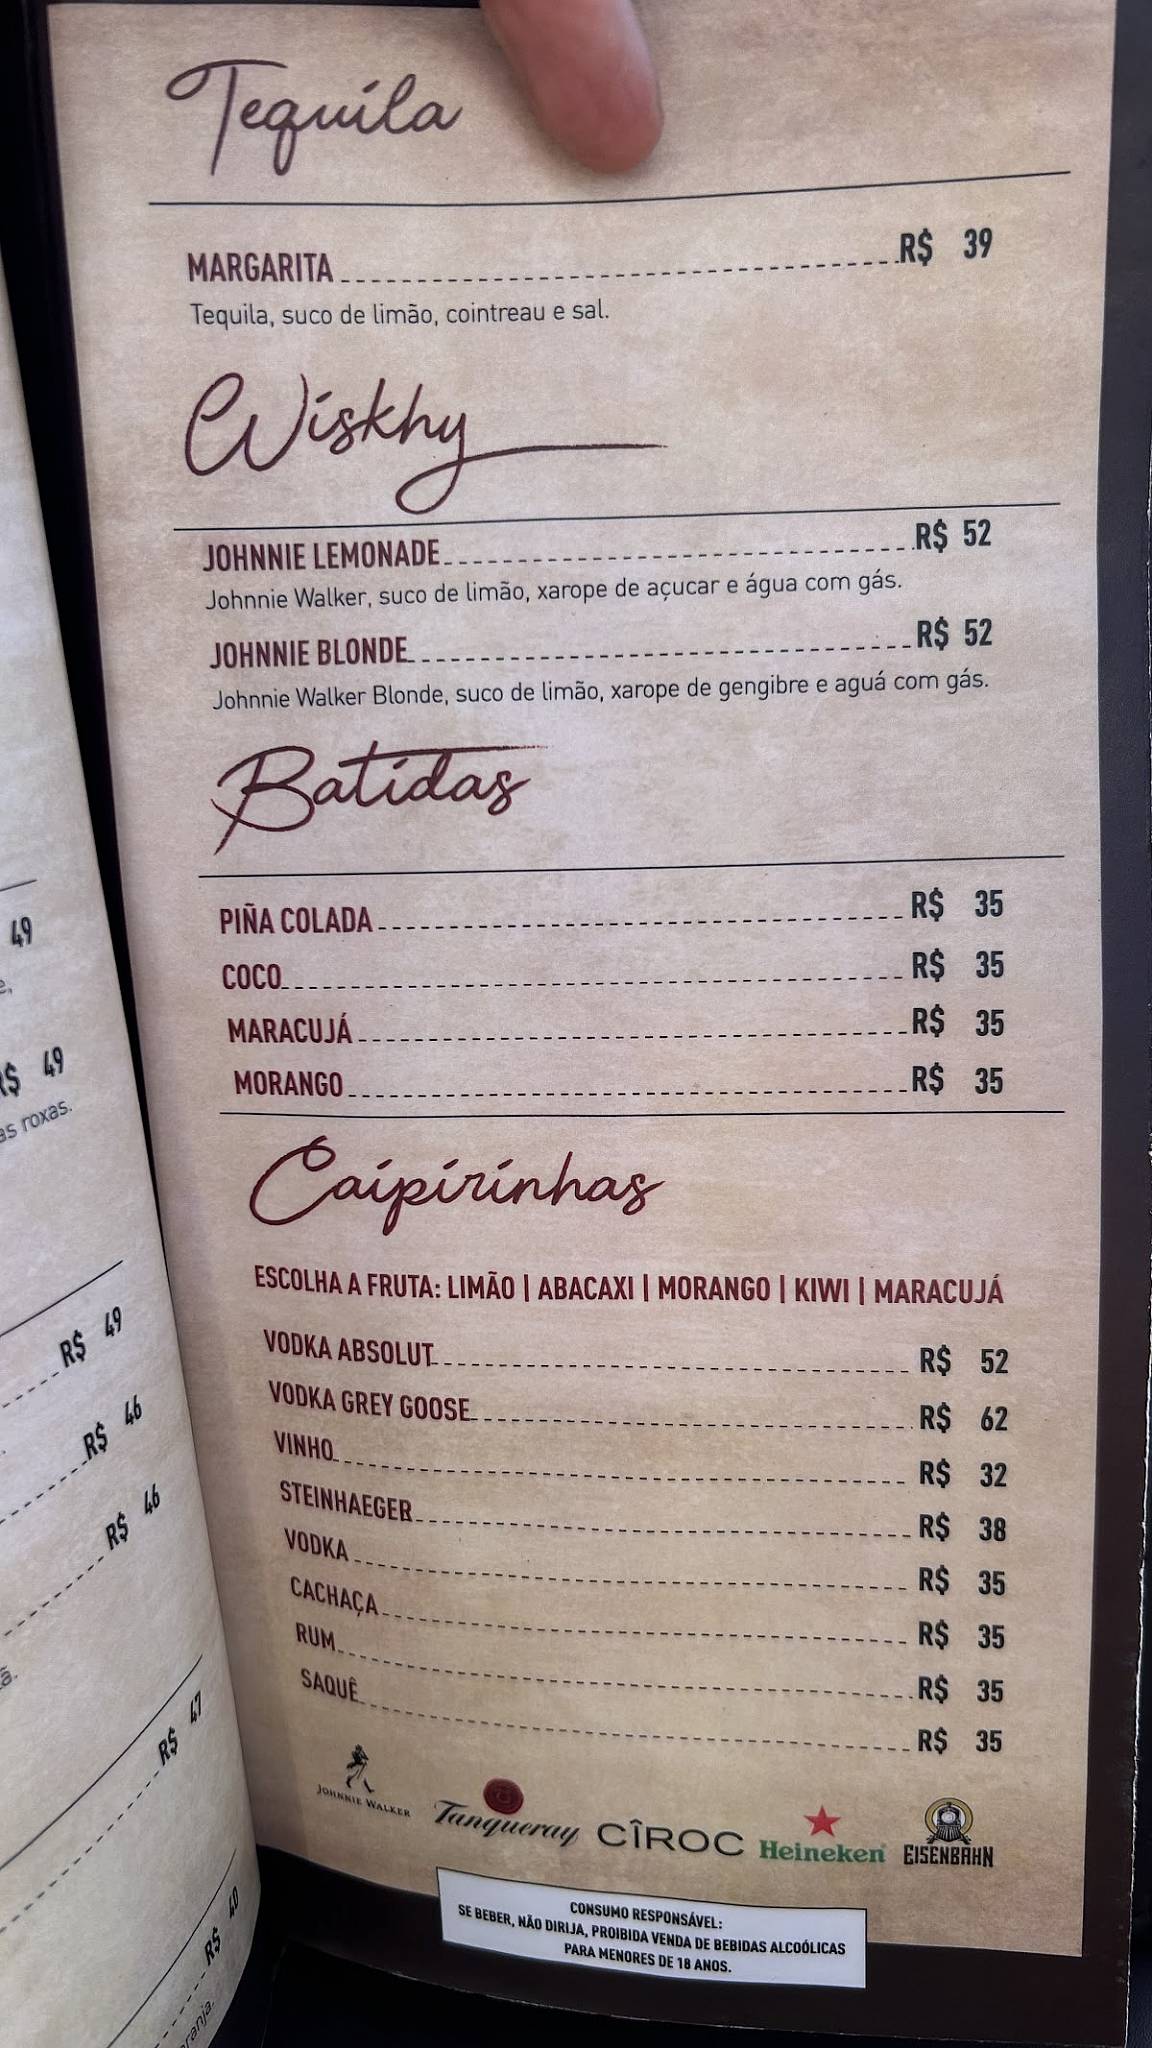 Tequila
MARGARITA R$ 39
Tequila, suco de limão, cointreau e sal.
Wiskhy
JOHNNIE LEMONADE R$ 52
Johnnie Walker, suco de limão, xarope de açucar e água com gás.
JOHNNIE BLONDE R$ 52
Johnnie Walker Blonde, suco de limão, xarope de gengibre e aguá com gás.
Batidas
PIÑA COLADA R$ 35
COCO R$ 35
MARACUJÁ R$ 35
MORANGO R$ 35
Caipirinhas
ESCOLHA A FRUTA: LIMÃO | ABACAXI | MORANGO | KIWI | MARACUJÁ
VODKA ABSOLUT R$ 52
VODKA GREY GOOSE R$ 62
VINHO R$ 32
STEINHAEGER R$ 38
VODKA R$ 35
CACHAÇA R$ 35
RUM R$ 35
SAQUÊ R$ 35
JOHNNIE WALKER
Tanqueray
CÎROC
Heineken
EISENBAHN
CONSUMO RESPONSÁVEL:
SE BEBER, NÃO DIRIJA, PROIBIDA VENDA DE BEBIDAS ALCOÓLICAS
PARA MENORES DE 18 ANOS.
49
R$ 49
as roxas.
R$ 49
R$ 46
R$ 46
R$ 47
R$ 40